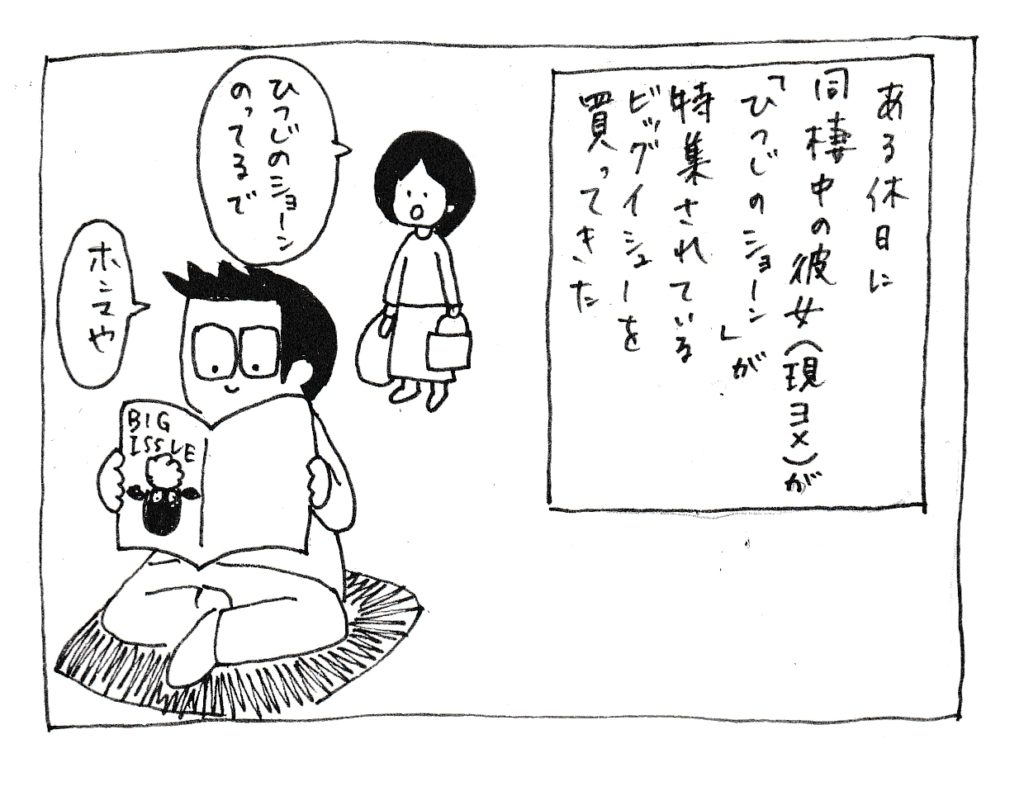 ある休日に
同棲中の彼女(現ヨメ)が
「ひつじのショーン」が
特集されている
ビッグイシューを
買ってきた
ひつじのショーン
のってるで
ホンマや
BIG
ISSUE